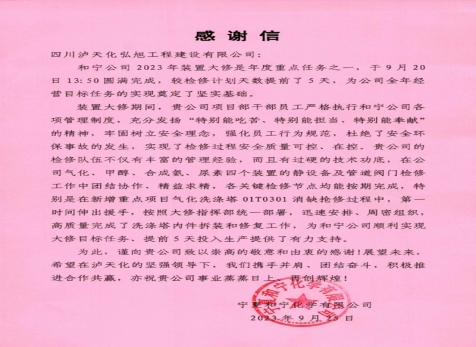 感谢信
四川泸天化弘旭工程建设有限公司:
和宁公司2023年装置大修是年度重点任务之一,于9月20
日13:50圆满完成,较检修计划天数提前了5天,为公司全年经
营目标任务的实现奠定了坚实基础。
装置大修期间,贵公司项目部干部员工严格执行和宁公司各
项管理制度,充分发扬“特别能吃苦、特别能担当、特别能奉献”
的精神,牢固树立安全理念,强化员工行为规范,杜绝了安全环
保事故的发生,实现了检修过程安全质量可控、在控。贵公司的
检修队伍不仅有丰富的管理经验,而且有过硬的技术功底,在公
司气化、甲醇、合成氨、尿素四个装置的静设备及管道阀门检修
工作中团结协作、精益求精,各关键检修节点均能按期完成,特
别是在新增重点项目气化洗涤塔01T0301消缺抢修过程中,第一
时间伸出援手,按照大修指挥部统一部署,迅速安排、周密组织,
高质量完成了洗涤塔内件拆装和修复工作,为和宁公司顺利实现
大修目标任务、提前5天投入生产提供了有力支持。
为此,谨向贵公司致以崇高的敬意和由衷的感谢!展望未来,
希望在泸天化的坚强领导下,我们携手并肩、团结奋斗,积极推
进合作共赢,亦祝贵公司事业蒸蒸日上,再创辉煌!
宁夏和宁化学有限公司
2023年9月25日